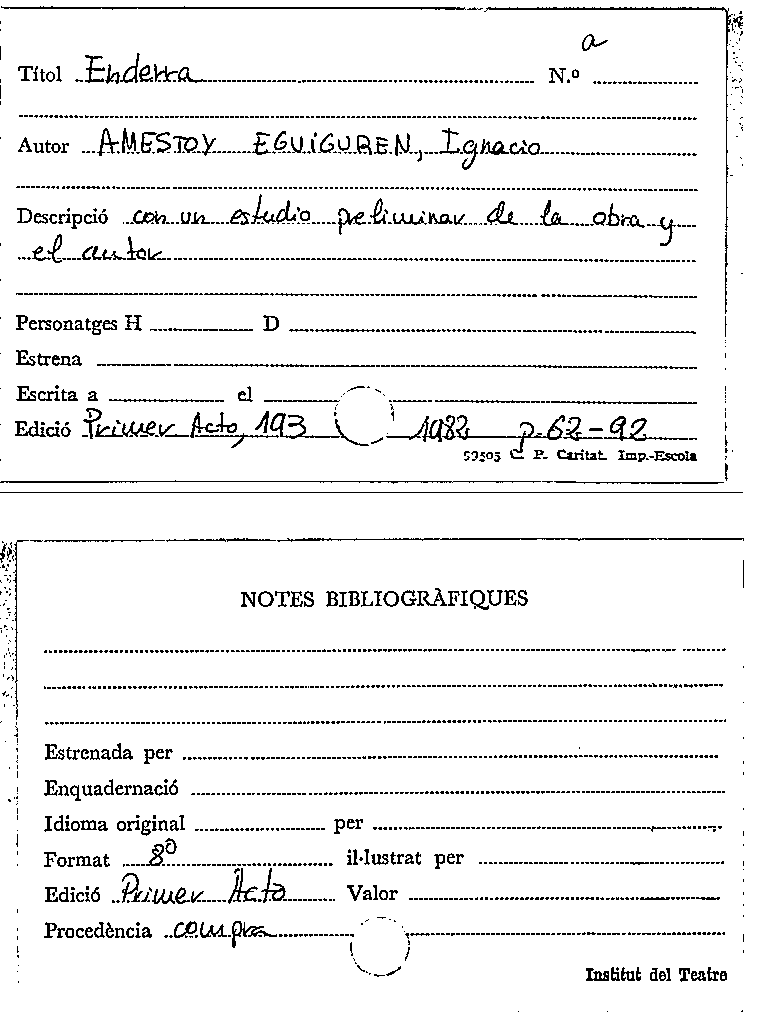 a
Títol Ederra N.º
Autor AMESTOY EGUIGUREN, Ignacio
Descripció con un estudio preliminar de la obra y
el autor
Personatges H D
Estrena
Escrita a el
Edició Primer Acto, 193 1982 p. 62-92
59505 C. P. Caritat. Imp.-Escola
NOTES BIBLIOGRÀFIQUES
Estrenada per
Enquadernació
Idioma original per
Format 8º il·lustrat per
Edició Primer Acto Valor
Procedència compra
Institut del Teatre